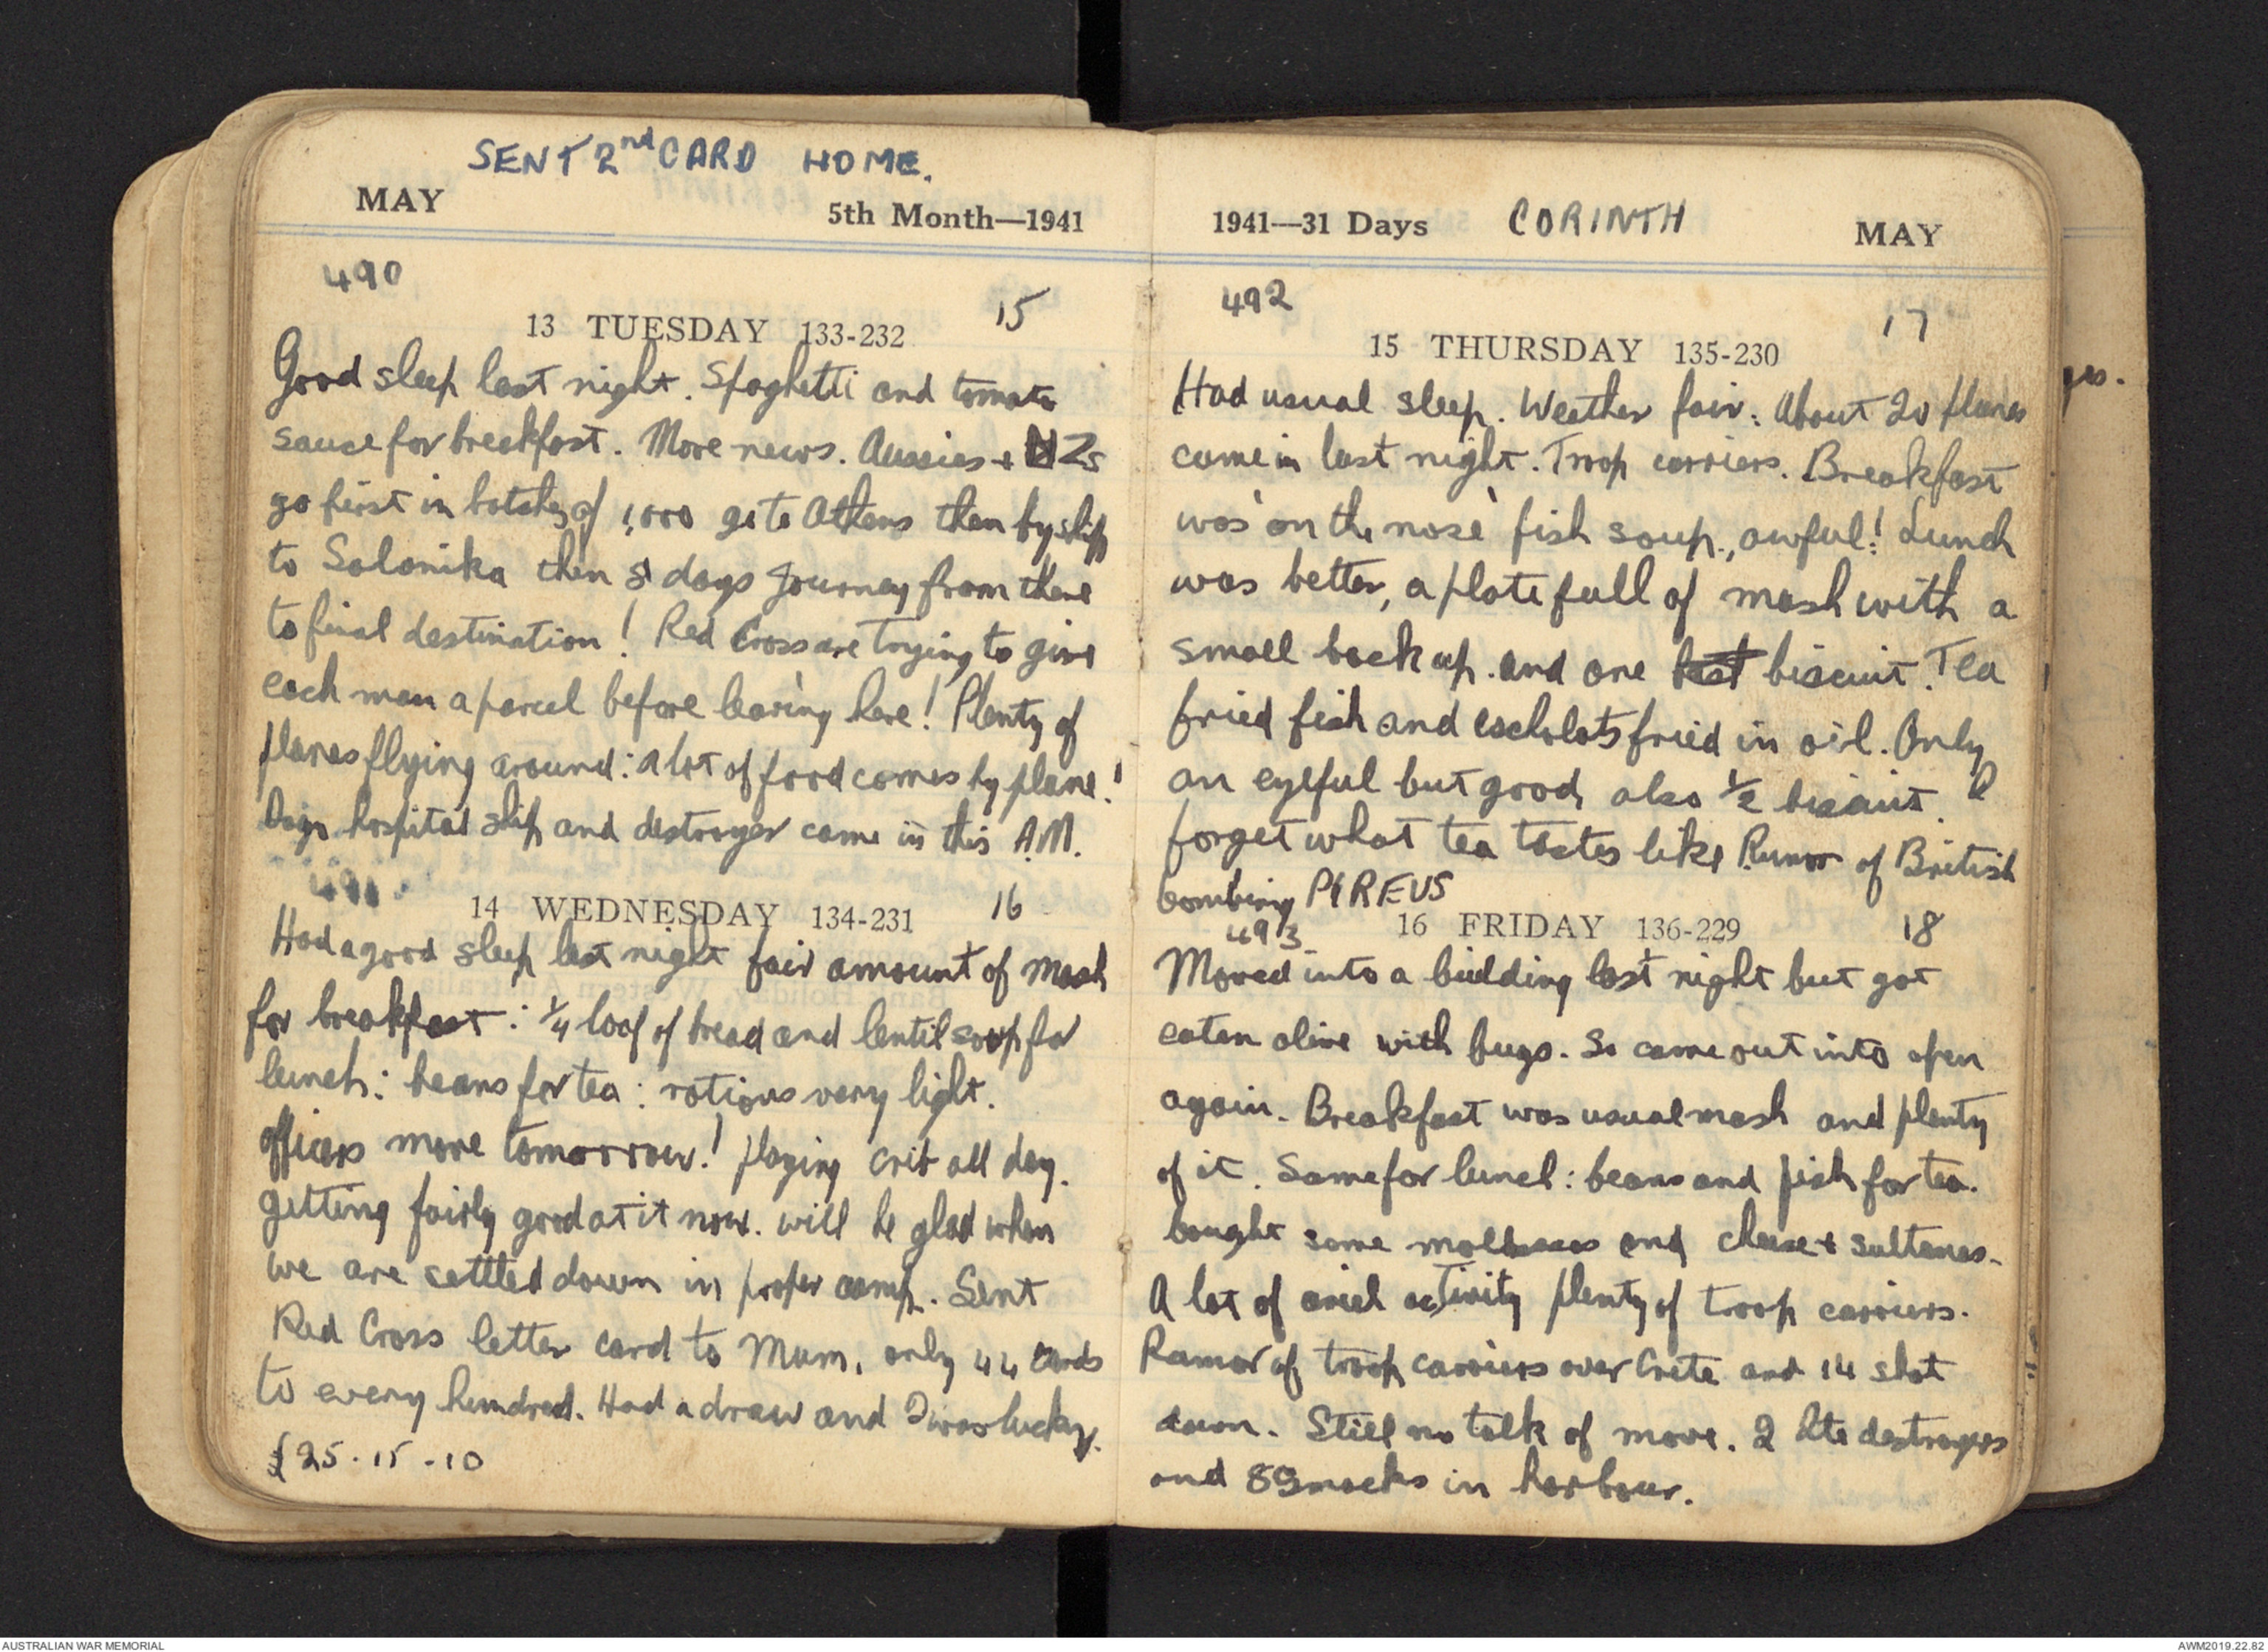 SENT 2nd CARD HOME.
MAY 5th Month—1941
490
15
13 TUESDAY 133-232
Good sleep last night. Spaghetti and tomato
sauce for breakfast. More news. Aussies + NZs
go first in batches of 1,000 go to Athens then by ship
to Salonika then 8 days journey from there
to final destination! Red Cross are trying to give
each man a parcel before leaving here! Plenty of
planes flying around: a lot of food comes by plane!
hospital ship and destroyer came in this A.M.
491
14 WEDNESDAY 134-231 16
Had a good sleep last night fair amount of mash
for breakfast: 1/4 loaf of bread and lentil soup for
lunch: beans for tea: rations very light.
officers move tomorrow! playing crib all day.
getting fairly good at it now. will be glad when
we are settled down in proper camp. Sent
Red Cross letter card to Mum, only 44 cards
to every hundred. Had a draw and I was lucky.
£25-15-10
1941—31 Days CORINTH MAY
492
17
15 THURSDAY 135-230
Had usual sleep. Weather fair: About 20 planes
came in last night. Troop carriers. Breakfast
was 'on the nose' fish soup., awful! Lunch
was better, a plate full of mash with a
small back up. and one best biscuit. Tea
fried fish and escholots fried in oil. Only
an eyeful but good, also 1/2 biscuit. I
forget what tea tastes like Rumor of British
bombing PIREUS
16 FRIDAY 136-229 18
493
Moved into a building last night but got
eaten alive with bugs. So came out into open
again. Breakfast was usual mash and plenty
of it. Same for lunch: beans and fish for tea.
bought some and cheese + sultanas.
A lot of ariel activity plenty of troop carriers.
Rumor of troop carriers over Crete and 14 shot
down. Still no talk of move. 2 Ite destroyers
and 8 Smacks in harbour.
AUSTRALIAN WAR MEMORIAL
AWM2019.22.82